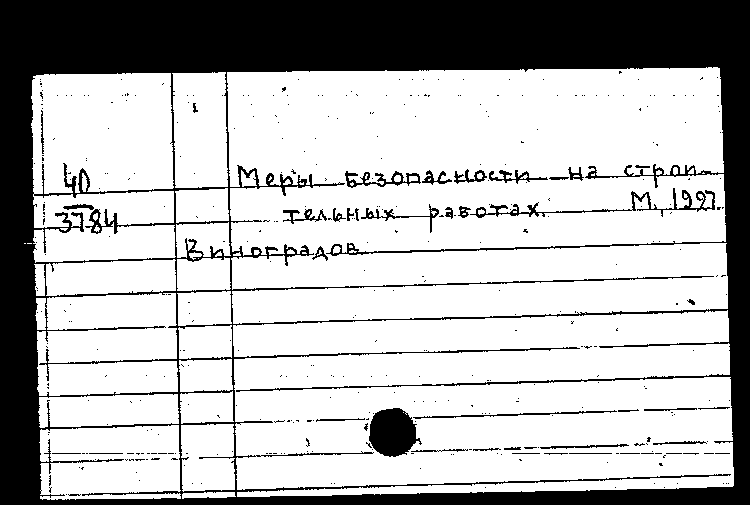 4D
3784
Меры безопасности на строи-
тельных работах. М., 1927.
Виноградов